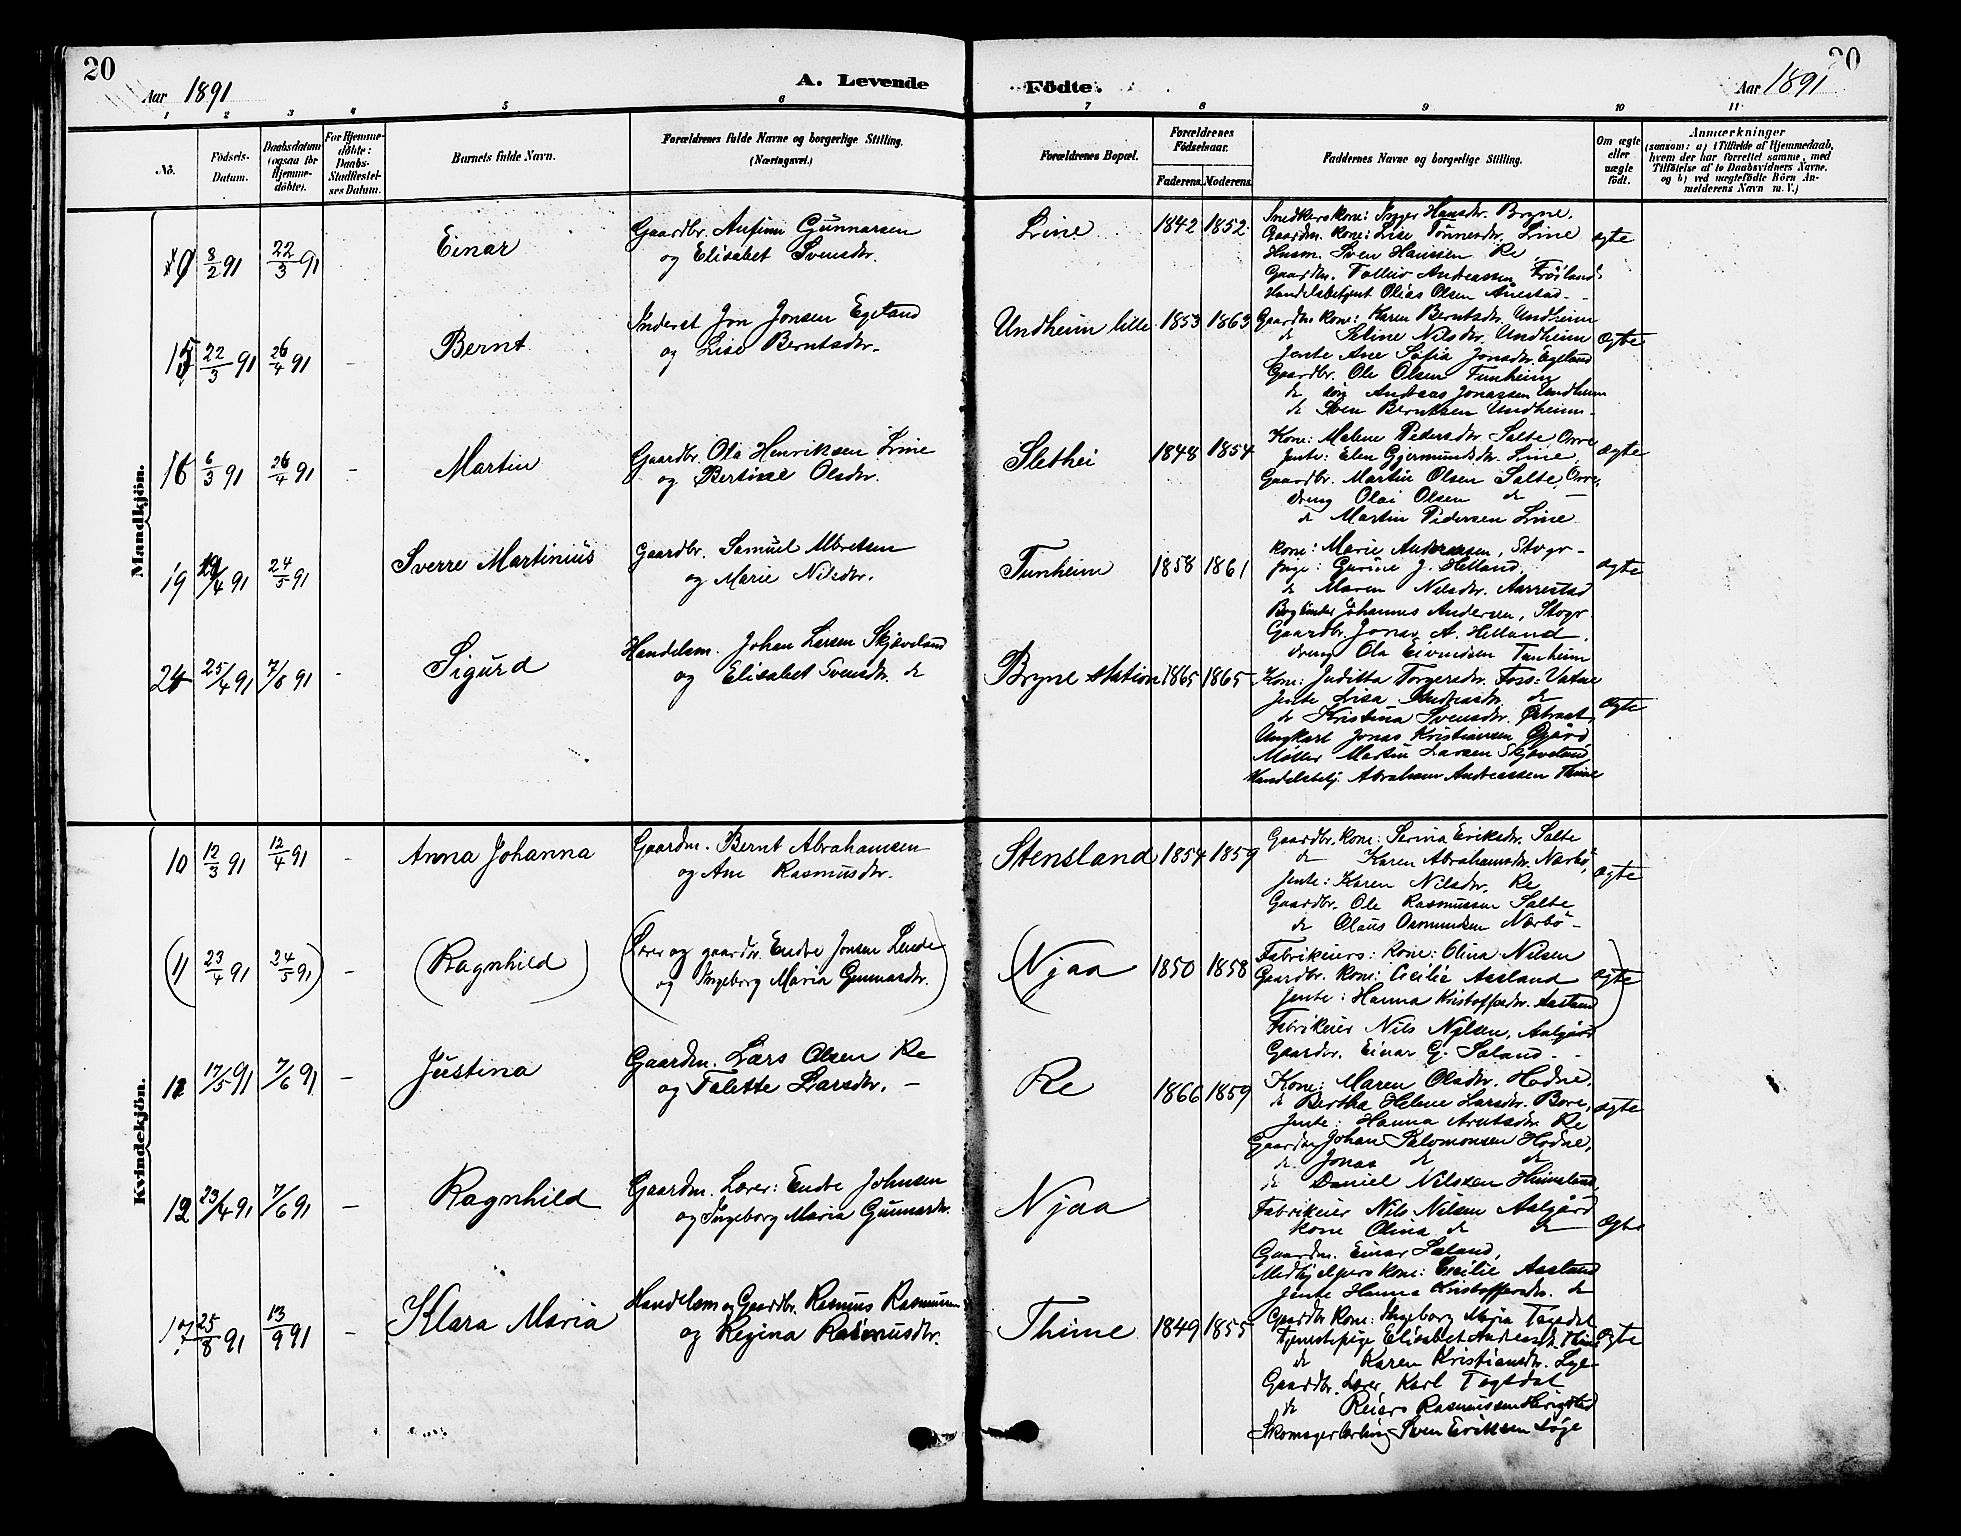 20
Aar 1891
A. Levende
Födte.
20
Aar 1891
1 2 3 4 5 6 7 8 9 10 11
Nö.
Födsels-Datum.
Daabsdatum (ogsaa for Hjemmedöbte).
For Hjemmedöbte: Daabs-Stadfæstelses Datum.
Barnets fulde Navn.
Forældrenes fulde Navne og borgerlige Stilling. (Næringsvei.)
Forældrenes Bopæl.
Forældrenes Födselsaar.
Faderens. Moderens.
Faddernes Navne og borgerlige Stilling.
Om ægte eller uægte födt.
Anmærkninger
(saasom: a) i Tilfælde af Hjemmedaab, hvem der har forrettet samme, med Tilföielse af to Daabsvidners Navne, og b) ved uægtefödte Börn Anmelderens Navn m. V.)
Mandkjön.
8/2 91 22/3 91 Einar
Gaardbr. Aufinn Gunnarsen
og Elisabet Svensdtr.
Line 1842 1852
Snedkerskone: Inger Hansdtr. Bryne.
Gaardm. kone: Lise Tönnesdtr. Line
Husm. Sven Hanssen Re
Gaardm. Tollev Andreassen Fröiland
Handelsbetjent Olias Olsen Anestad -
ægte
15 22/3 91 26/4 91 - Bernt
Inderst Jon Jonsen Egeland
og Lise Berntsdtr.
Undheim lille 1853 1863
Gaardm kone: Karen Berntsdtr Undheim
de Seline Nilsdtr. Undheim
Jente Ane Sofia Jonsdtr. Egeland
Gaardbr. Ole Olsen Tunheim
de sön Andreas Jonassen Undheim
de Sven Berntsen Undheim
Ægte
16 6/3 91 26/4 91 - Martin
Gaardbr. Ola Henriksen Line
og Bertine Olsdtr.
Slethei 1848 1854
Kone: Malene Pedersdtr Salte Orre
Jente: Elen Gjermundsdtr. Line
Gaardbr. Martin Olsen Salte, Orre,
dreng Olai Olsen de -
de Martin Pedersen Line
ægte
19 /4 91 24/5 91 Sverre Martinius
Gaardbr. Samuel Albretsen
og Marie Nilsdtr.
Tunheim 1858 1861
Kone: Marie Andersen, Stvgr -
Pige: Gurine J. Helland,
de Maren Nilsdtr. Aarrestad
Bogbinder Johannes Andersen, Stvgr
Gaardbr. Jonas A. Helland,
dreng Ola Eivindsen Tunheim
ægte
25/4 91 7/6 91 - Sigurd
Handelsm. Johan Larsen Skjæveland
og Elisabet Svensdtr. de
Bryne station 1865 1865
Kone: Juditta Torgersdtr. Foss-Vatne
Jente Lisa Andreasdtr de
de Kristina Svensdtr. Östraat,
Ungkarl Jonas Kristiansen
Möller Martin Larsen Skjæveland
Handelsbtj. Abraham Andreassen Thime
Ægte
Kvindekjön.
10 12/3 91 12/4 91 - Anna Johanna
Gaardm. Bernt Abrahamsen
og Ane Rasmusdtr.
Stensland 1854 1859
Gaardbr. kone: Serina Eriksdtr Salte
de Karen Abrahamsdtr. Nærbö,
Jente: Karen Nilsdtr. Re
Gaardbr. Ole Rasmussen Salte
de Olaus Osmundsen Nærbö -
ægte
(11 23/4 91 24/5 91) - (Ragnhild)
(Lærer og gaardm Endre Jonsen Lende
og Ingeborg Maria Gunnarsdtr.)
(Njaa 1850 1858
Fabrikeiers Kone: Olina Nilsen
Gaardbr. kone: Cecilie Aasland
Jente: Hanna Kristoffersdtr. Aasland
Fabrikeier Nils Nilsen, Aalgård
Gaardbr. Einar G. Saland -
ægte)
17/5 91 7/6 91 - Justina
Gaardm. Lars Olsen Re
og Talette Larsdtr. -
Re 1866 1859
Kone: Maren Olsdtr. Hodne,
de Bertha Helene Larsdtr. Bore,
Jente: Hanna Arntsdtr Re
Gaardm Johan Salomonsen Hodne,
de Jonas de de
de Daniel Nilssen
ægte
12 23/4 91 7/6 91 - Ragnhild
Gaardm. Lærer: Endre Johnsen
og Ingeborg Maria Gunnarsdtr.
Njaa
Fabrikeier Nils Nilsen Aalgård
kone Olina de de
Gaardm. Einar Saland,
Medhjelpers kone: Cecilie Aasland
Jente Hanna Kristoffersdtr. de
Ægte
17 25/8 91 13/9 91 - Klara Maria
Handelsm og Gaardbr. Rasmus Rasmussen
og Regina Rasmusdtr.
Thime 1849 1855
Gaardbr Kone: Ingeborg Marja Tegdal
Tjenestepige Elisabet Andreasdtr Thime
de Karen Kristiansdtr. Lye
Gaardbr. Lærer Karl Tegdal
de Reiers Rasmussen Herigstad
Skomagerlærling Sven Eriksen
Ægte